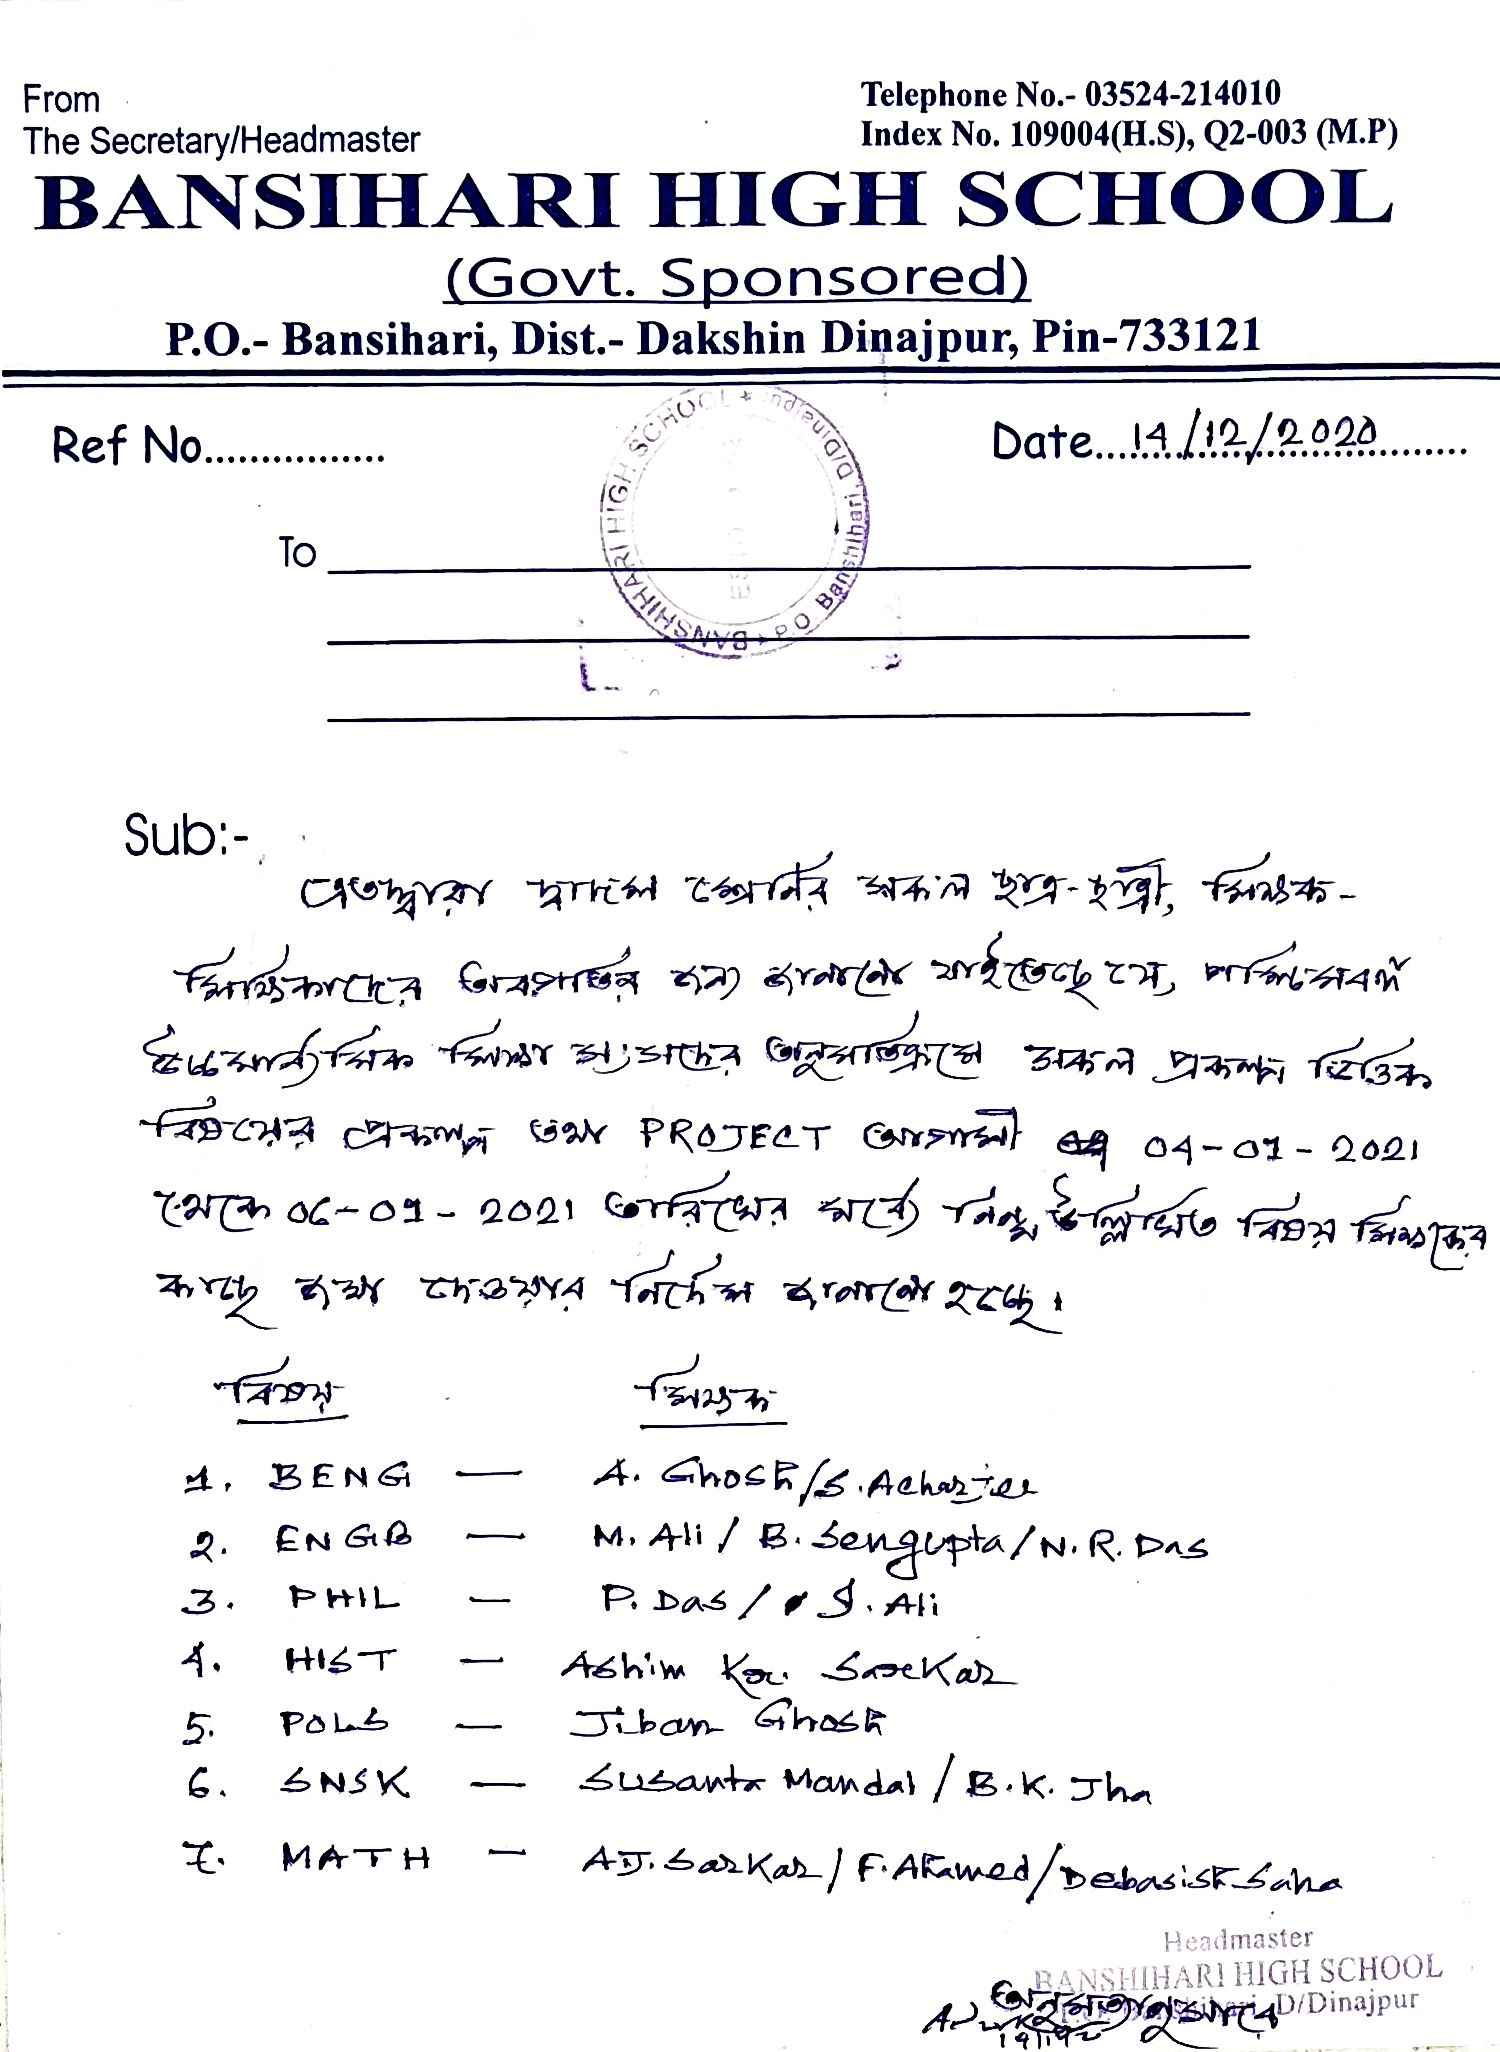 From
The Secretary/Headmaster
Telephone No.- 03524-214010
Index No. 109004(H.S), Q2-003 (M.P)
BANSIHARI HIGH SCHOOL
(Govt. Sponsored)
P.O.- Bansihari, Dist.- Dakshin Dinajpur, Pin-733121
Ref No................
Date....14/12/2020.......
BANSHIHARI HIGH SCHOOL * P.O Banshihari, D/Dinajpur
To
Sub:-
এতদ্দ্বারা দ্বাদশ শ্রেনির সকল ছাত্র-ছাত্রী, শিক্ষক-
শিক্ষিকাদের অবগতির জন্য জানানো যাইতেছে যে, পশ্চিমবঙ্গ
উচ্চমাধ্যমিক শিক্ষা সংসদের অনুমতিক্রমে সকল প্রকল্প ভিত্তিক
বিষয়ের প্রকল্প তথা PROJECT আগামী 04-01-2021
থেকে 06-01-2021 তারিখের মধ্যে নিম্ন উল্লিখিত বিষয় শিক্ষকের
কাছে জমা দেওয়ার নির্দেশ জানানো হচ্ছে।
বিষয় শিক্ষক
1. BENG — A. Ghosh/S. Acharjee
2. ENGB — M. Ali / B. Sengupta/N.R. Das
3. PHIL — P. Das / J. Ali
4. HIST — Ashim Kr. Sarkar
5. POLS — Jiban Ghosh
6. SNSK — Susanta Mandal / B.K. Jha
7. MATH — A.J. Sarkar/ F. Ahamed/Debasish Saha
Headmaster
BANSHIHARI HIGH SCHOOL
D/Dinajpur
অনুমত্যনুসারে